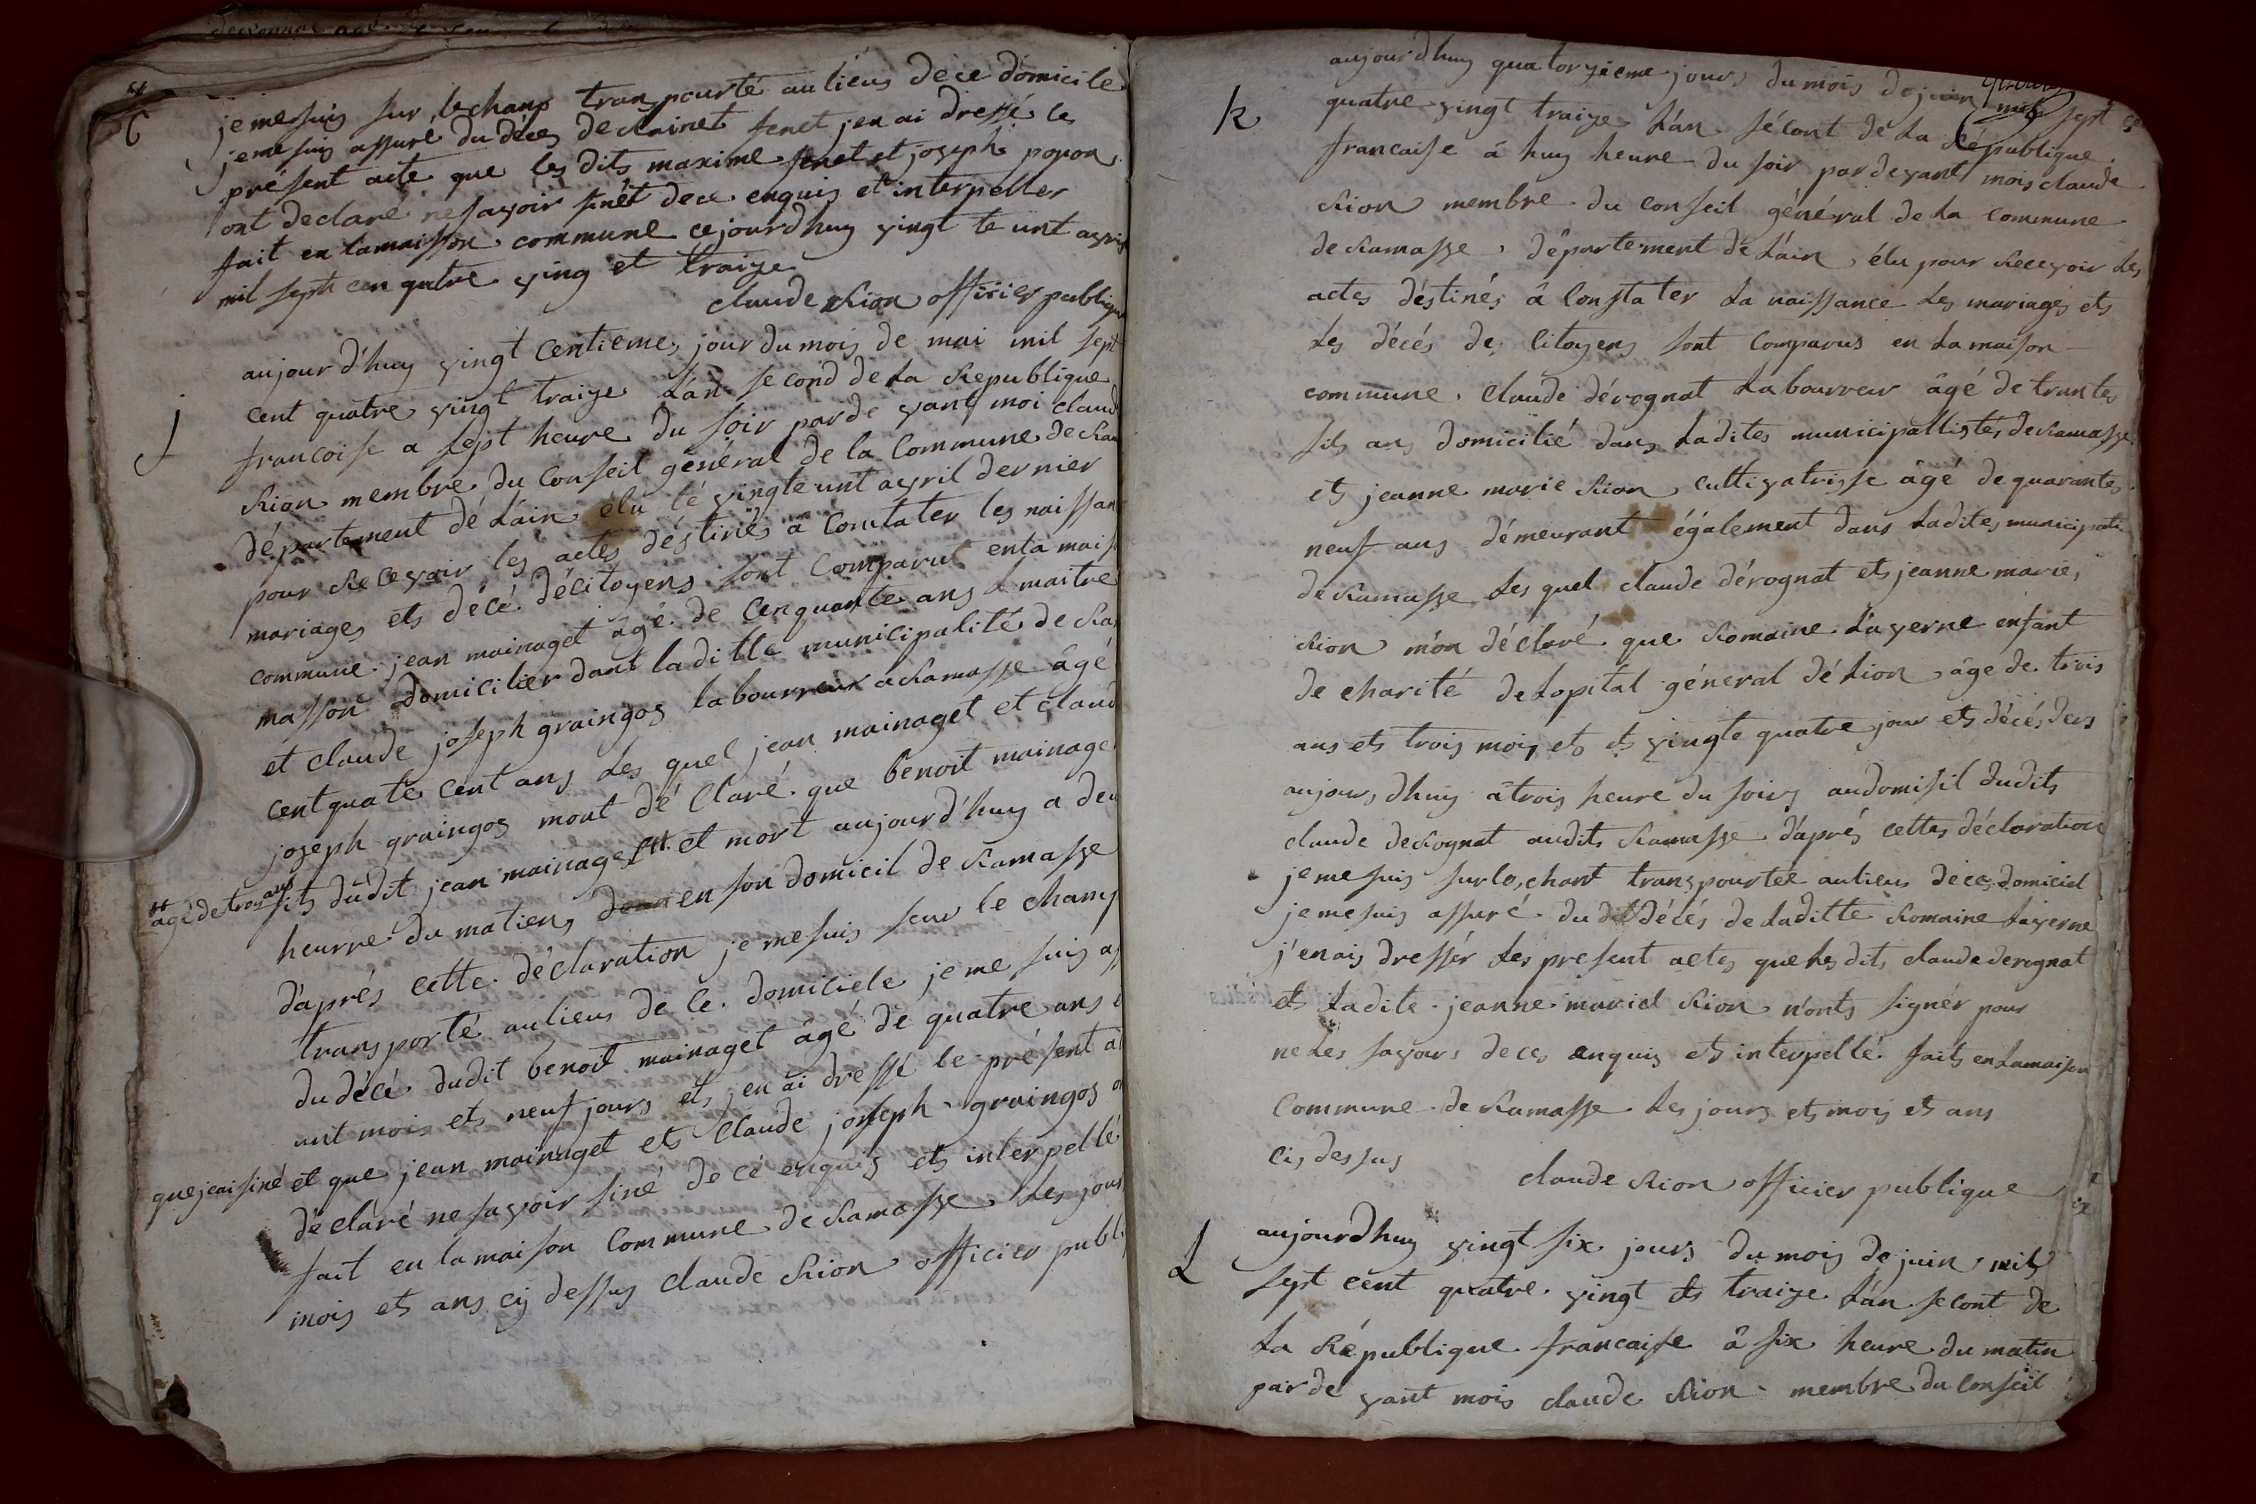 6
je me suis sur lechamp transpourté au liéus de ce domicile
je me suis assuré du déces de Rainet fenet jen ai dressé le
présent acte que les dits maxime fenet et joseph popon
ont declaré ne savoir sinêt de ce enquis et interpeller
fait en la maisson commune cejourdhuy vingt te unt avri
mil sept cen quatre ving et traize
claude Rion officier publiqu
j
aujourd'huy vingt centieme, jour du mois de mai mil sept
cent quatre vingt traize L'an second de la Republique
francoise a sept heure du soir parde vant moi claud
Rion membre du conseil général de la Commune de Ra
département dé L'ain élu lé vingte unt avril dernier
pour Recevoir les actes déstinés à Constater les naissan
mariages ets décé décitoyens sont comparut en la mais
commune jean mainaget âgé de cenquante ans L maitre
masson domicilier dans laditte municipalité de Ra
et claude joseph graingos labourreur a Ramasse âgé
cent quate cent ans Les quel jean mainaget et claud
joseph graingos mont dé claré que benoit mainage
âgé de trois ans
fits dudit jean mainaget et mort aujourd'huy a deu
heurre du matiens en son domicil de Ramasse
d'aprés cette déclaration je me suis sur le champ
transporté au liens de ce domiciele je me suis as
du décé dudit benoit mainaget âgé de quatre ans e
unt mois ets neuf jours ets jen ai dressé le présent a
que jeai siné et que jean mainaget ets claude joseph graingos o
déclaré ne savoir siné de cé enquis ets interpellé
fait en la maison commune de Ramasse Les jour
mois ets ans cy dessus claude Rion officier publi
k
aujourdhuy quatorzieme jours du mois de juin mil sept ce
quatre vingt traize L'an sécont dé La République
francaise â huy heure du soir par devant mois claude
Rion membre du conseil général de La commune
de Ramasse, département de L'ain, élu pour Recevoir Les
actes déstinés â Constater La naissance Les mariages ets
Les décés de Citoyens sont Comparus en La maison
commune, claude dérognat Labourreur âgé de trantes
sits ans domicilié dans Ladites municipallistes de Ramasse
ets jeanne marie Rion, cultivatrisse âgé de quarantes
neuf ans démeurant également dans Ladites municipati
de Ramasse Les quel claude dérognat ets jeanne marie,
Rion m'on déclaré que Romaine Laverne enfant
de charité de Lopital général dé Lion âge de trois
ans ets trois mois ets ets vingte quatre jour ets décés, des
aujours dhuy â trois heure du soirs au domisil dudits
claude deRognat audits Ramasse d'aprés cettes déclaration
je me suis surle, chant transpourtée auliens dece, domiciel
je me suis assuré du dit décés de Laditte Romaine Laverne
j'enais dressér Les present actes que Les dits claude derognat
ets Ladite jeanne mariel Rion n'onts signér pour
ne Les savours de ces enquis ets interpellé faits en Lamaison
Commune de Ramasse Les jours ets mois ets ans
Cis dessus
claude Rion officier publique
L
aujourdhuy vingt six jours du mois de juin mils
sept cent quatre vingt ets traize L'an secont de
La République francaise â six heure du matin
par de vant mois claude Rion membre du Conseil